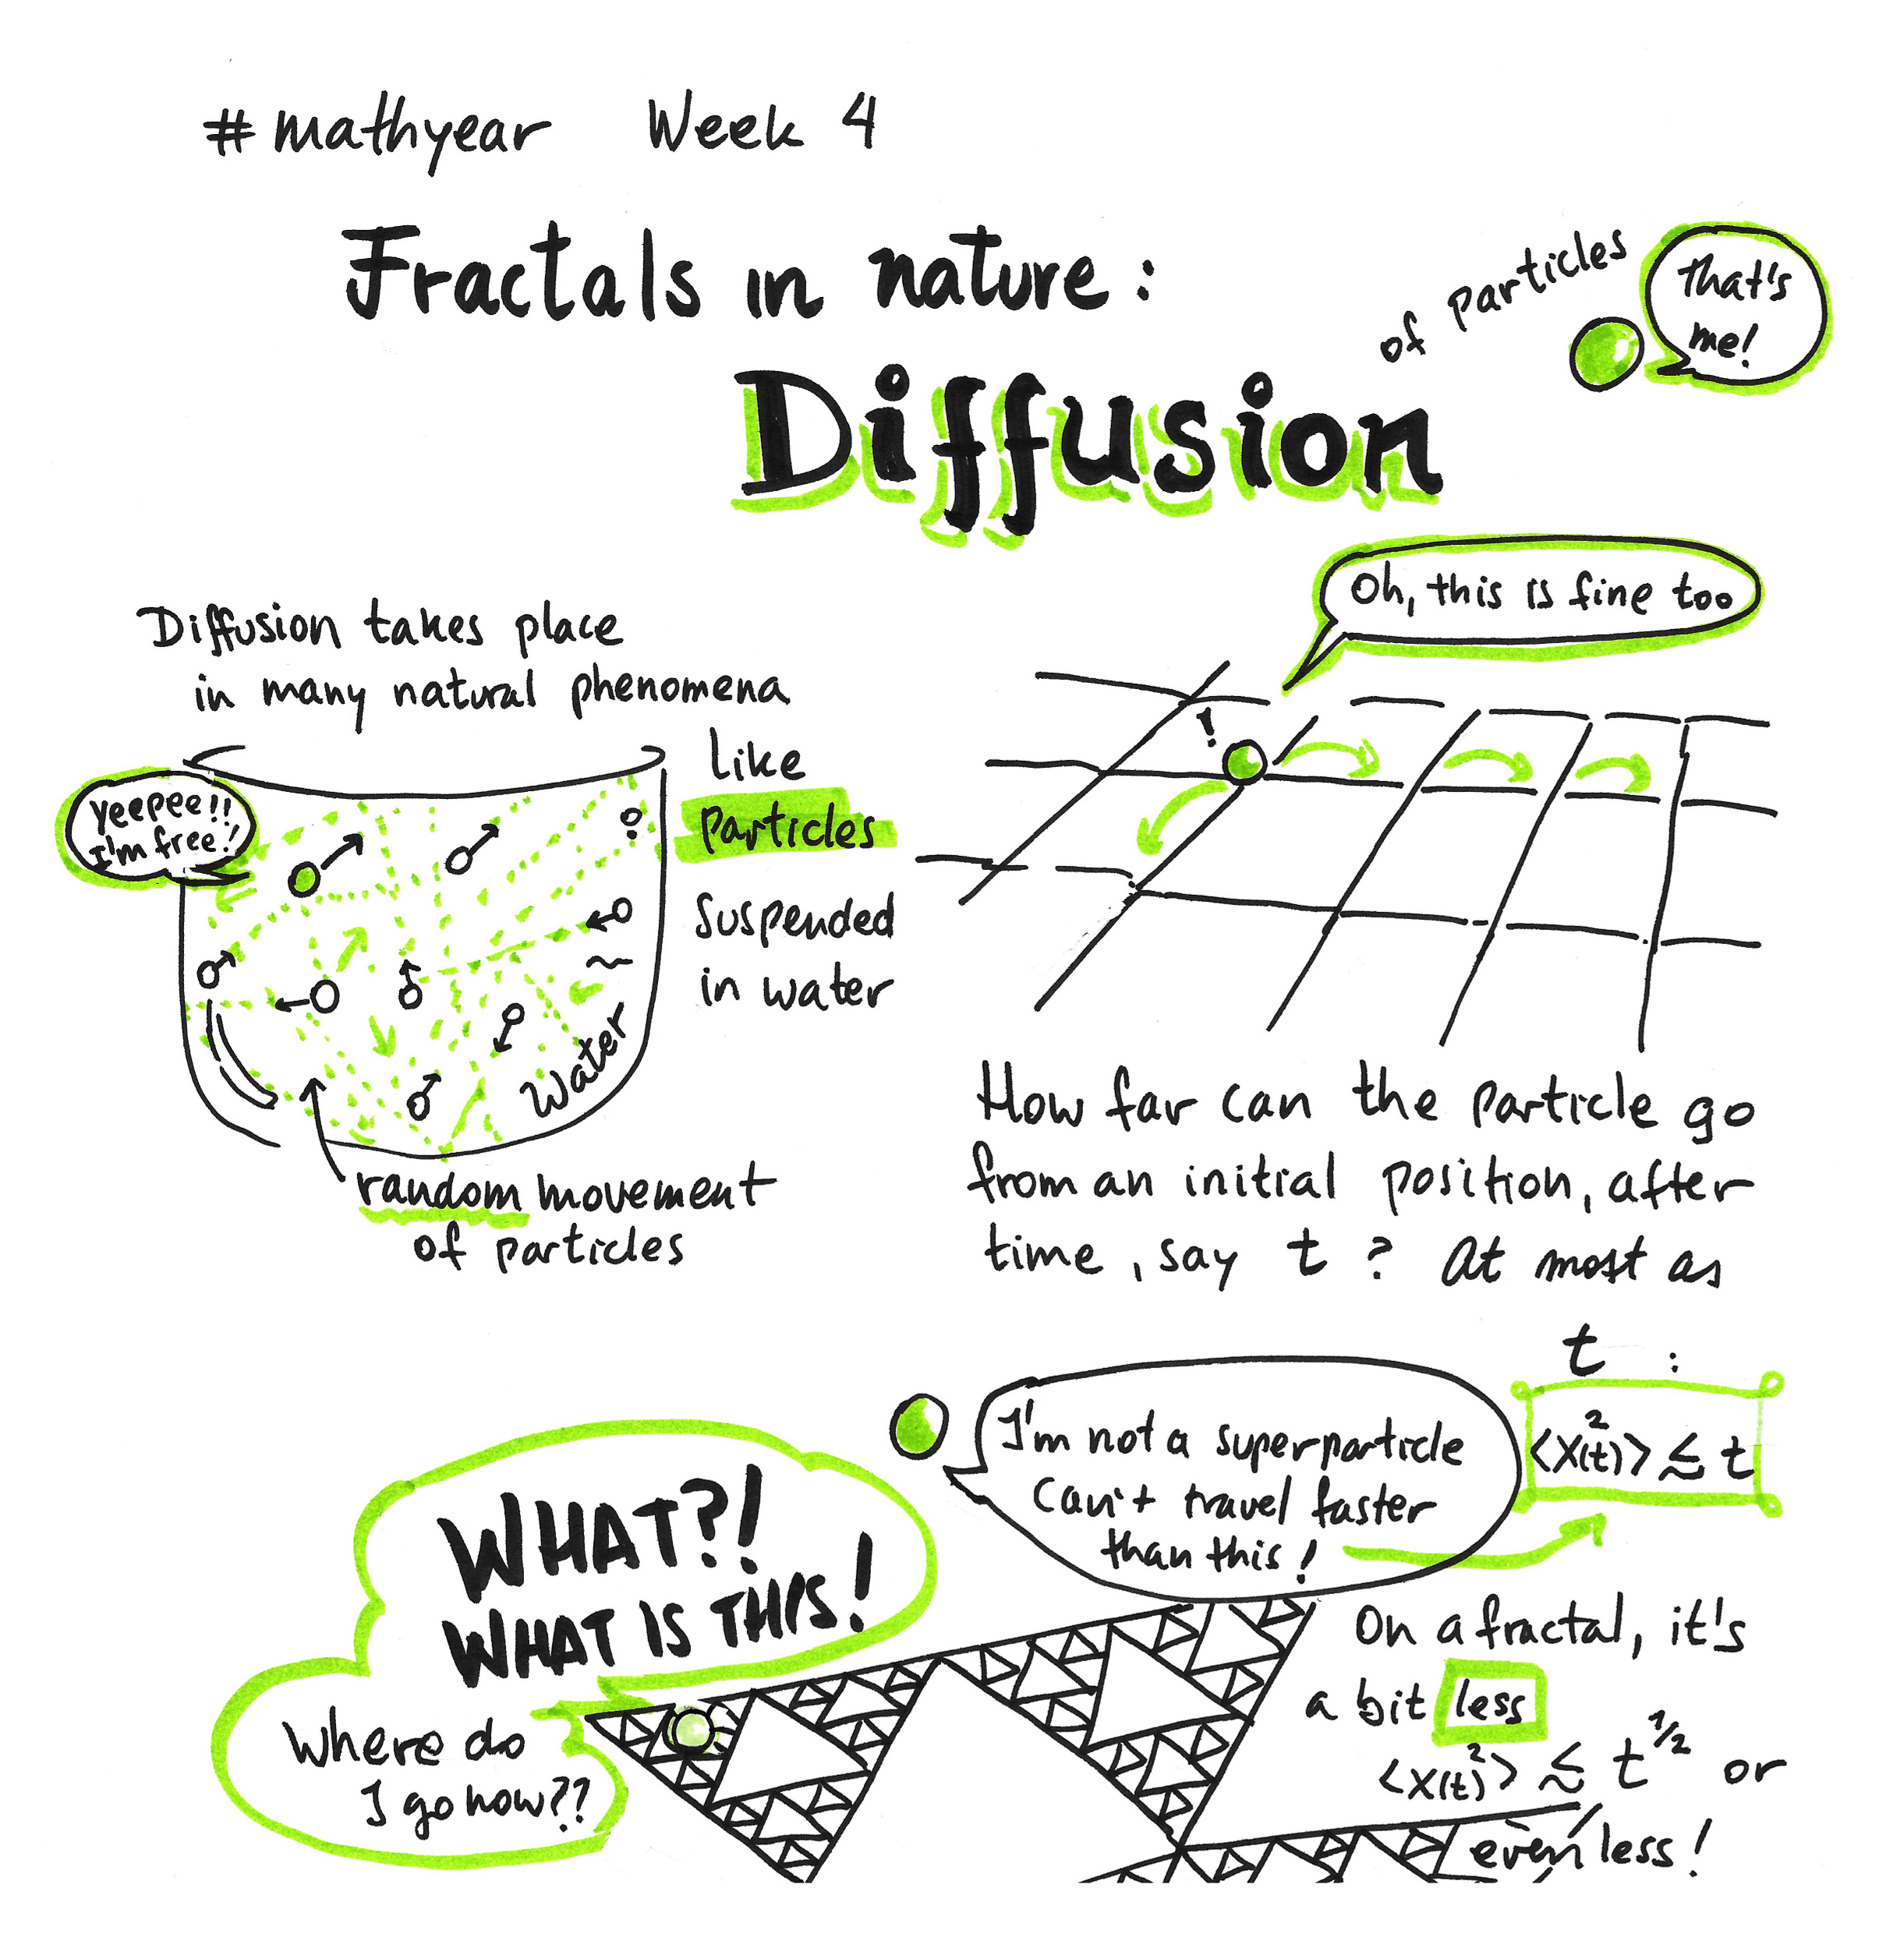 # mathyear Week 4
Fractals in nature:
Diffusion
of particles
That's
me!
Diffusion takes place
in many natural phenomena
like
Particles
suspended
in water
Yeepee!!
I'm free!
Water
random movement
of particles
Oh, this is fine too
!
How far can the particle go
from an initial position, after
time, say t ? At most as
t :
<X(t)²> ≲ t
I'm not a superparticle
Can't travel faster
than this!
WHAT?!
WHAT IS THIS!
Where do
I go now??
On a fractal, it's
a bit less
<X(t)²> ≲ t^1/2 or
even less!